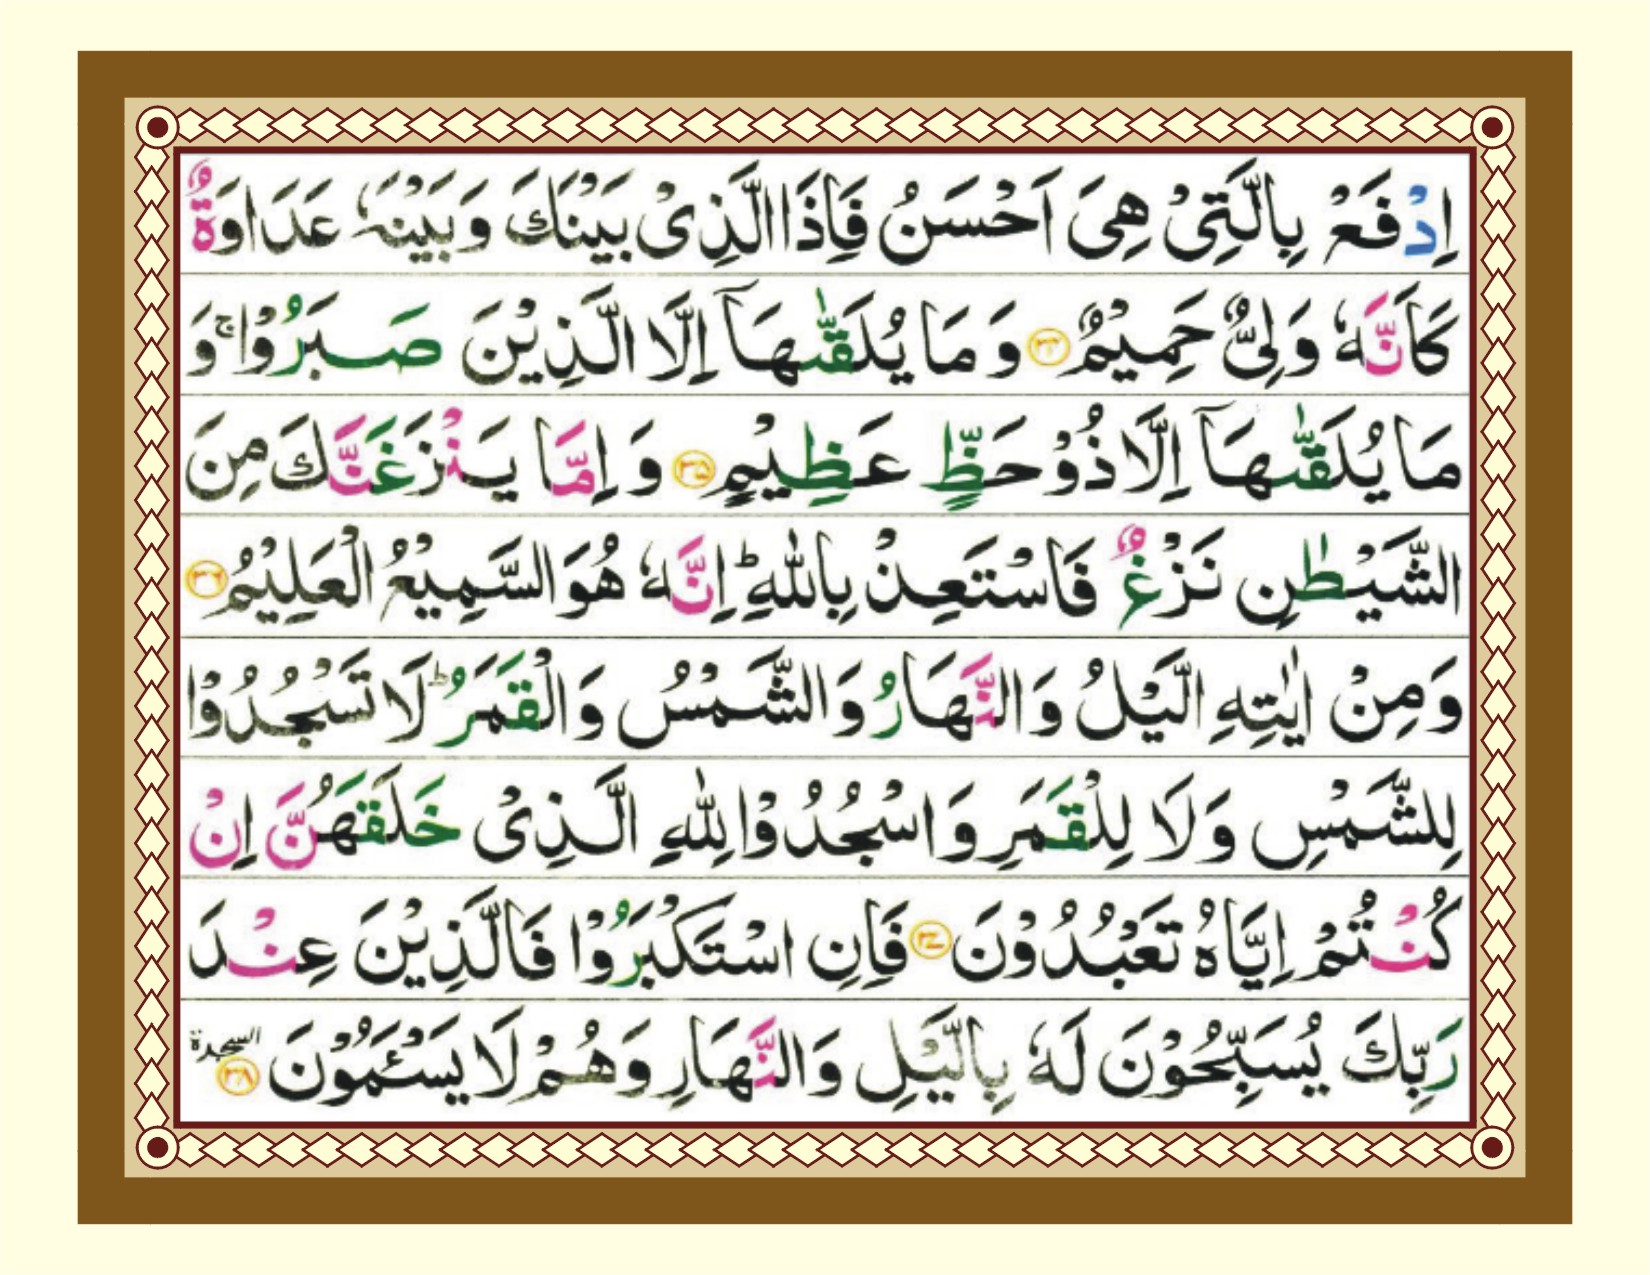 اِدْفَعْ بِالَّتِیْ هِیَ اَحْسَنُ فَاِذَا الَّذِیْ بَیْنَكَ وَ بَیْنَهٗ عَدَاوَةٌ
كَاَنَّهٗ وَلِیٌّ حَمِیْمٌ ﴿۳۴﴾ وَ مَا یُلَقّٰىهَاۤ اِلَّا الَّذِیْنَ صَبَرُوْا ۚ وَ
مَا یُلَقّٰىهَاۤ اِلَّا ذُوْ حَظٍّ عَظِیْمٍ ﴿۳۵﴾ وَ اِمَّا یَنْزَغَنَّكَ مِنَ
الشَّیْطٰنِ نَزْغٌ فَاسْتَعِذْ بِاللّٰهِ ؕ اِنَّهٗ هُوَ السَّمِیْعُ الْعَلِیْمُ ﴿۳۶﴾
وَ مِنْ اٰیٰتِهِ الَّیْلُ وَ النَّهَارُ وَ الشَّمْسُ وَ الْقَمَرُ ؕ لَا تَسْجُدُوْا
لِلشَّمْسِ وَ لَا لِلْقَمَرِ وَ اسْجُدُوْا لِلّٰهِ الَّذِیْ خَلَقَهُنَّ اِنْ
كُنْتُمْ اِیَّاهُ تَعْبُدُوْنَ ﴿۳۷﴾ فَاِنِ اسْتَكْبَرُوْا فَالَّذِیْنَ عِنْدَ
رَبِّكَ یُسَبِّحُوْنَ لَهٗ بِالَّیْلِ وَ النَّهَارِ وَ هُمْ لَا یَسْـَٔمُوْنَ ﴿۳۸﴾ السجدة